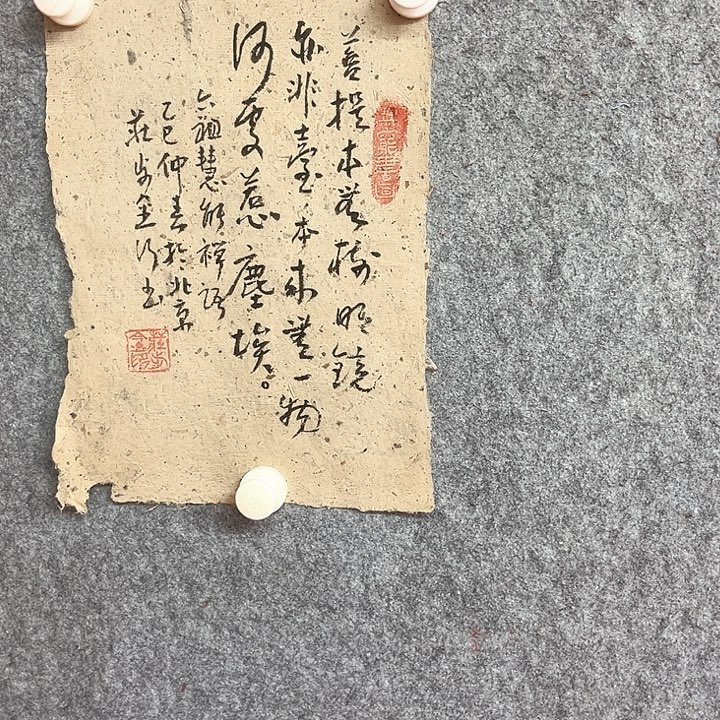 菩提本無樹明鏡
亦非臺本來無一物
何處惹塵埃
六祖慧能禪語
乙巳仲春於北京
莊步金行書